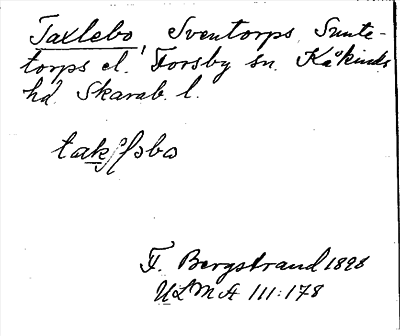 Taxlebo, Sventorps, Sunte-
torps el. Forsby sn. Kåkinds
hd. Skarab. l.
F. Bergstrand 1898
ULMA 111:178